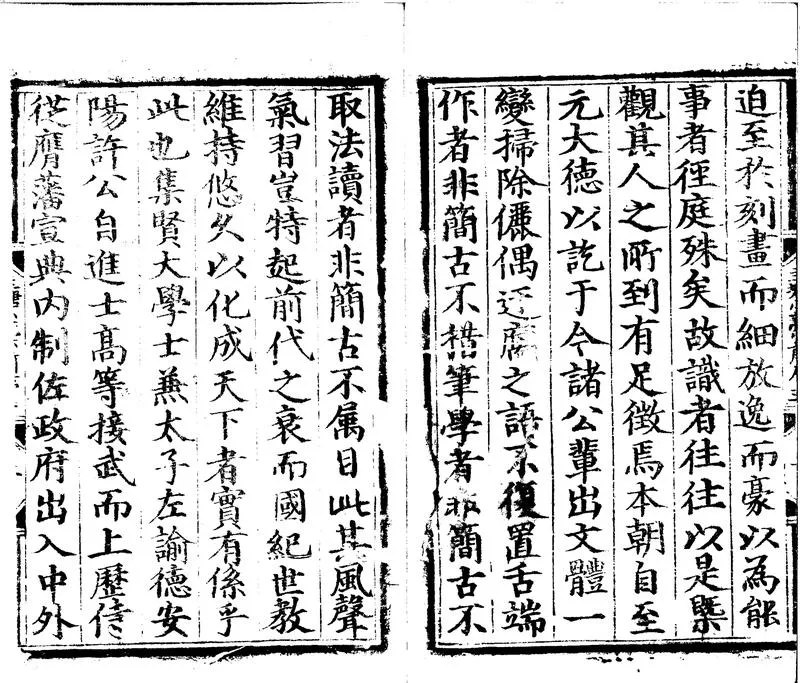 迫至於刻畫而細放逸而豪以為能
事者徑庭殊矣故識者往往以是槩
觀其人之所到有足徵焉本朝自至
元大德以訖于今諸公輩出文體一
變掃除儷偶迂腐之語不復置舌端
作者非簡古不措筆學者非簡古不
取法讀者非簡古不属目此其風聲
氣習豈特起前代之衰而國紀世教
維持悠久以化成天下者實有係乎
此也集賢大學士兼太子左諭德安
陽許公自進士髙等接武而上歷侍
從膺藩宣典内制佐政府出入中外